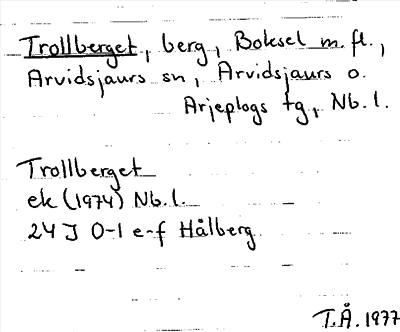 Trollberget, berg, Boksel m.fl.,
Arvidsjaurs sn, Arvidsjaurs o.
Arjeplogs tg, Nb.l.
Trollberget
ek (1974) Nb.l.
24 J 0-1 e-f Hålberg
T.Å. 1977